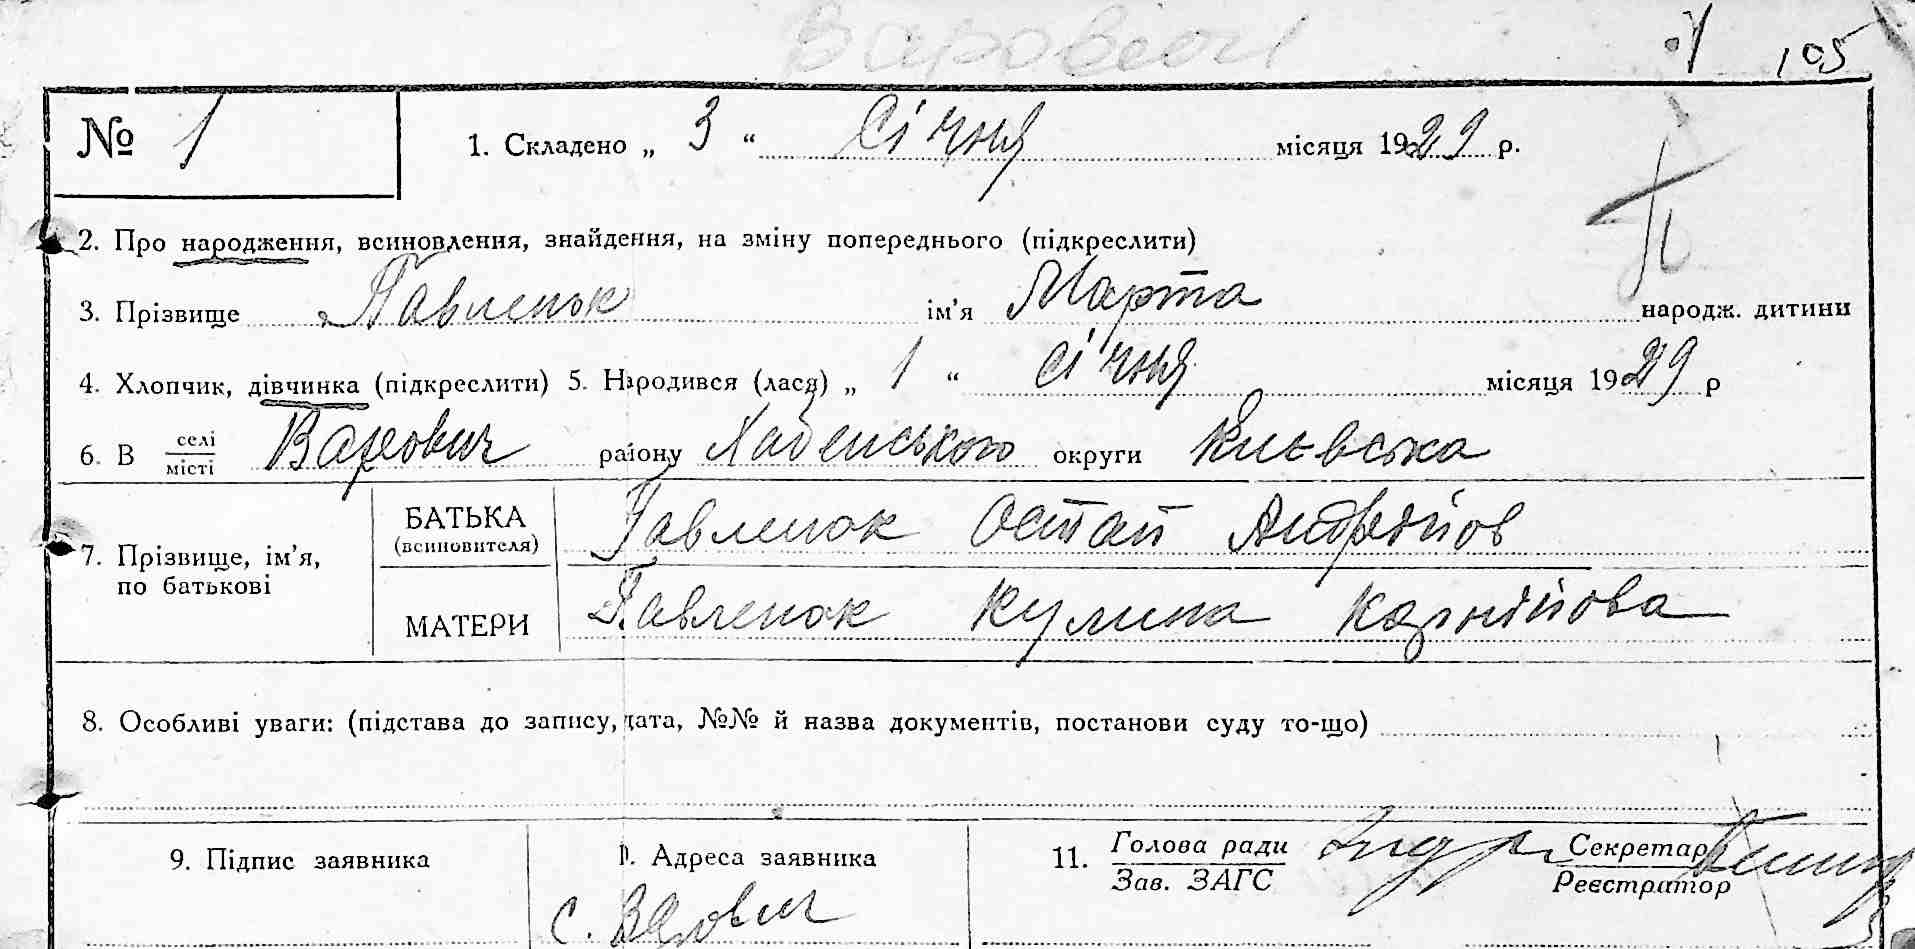 Варовичі
105
№ 1
1. Складено „ 3 “ Січня місяця 1929 р.
2. Про народження, всиновлення, знайдення, на зміну попереднього (підкреслити)
3. Прізвище Павленок ім’я Марта народж. дитини
4. Хлопчик, дівчинка (підкреслити) 5. Народився (лася) „ 1 “ січня місяця 1929 р
6. В селі/місті Варович району Хабенського округи Київська
7. Прізвище, ім’я, по батькові
БАТЬКА (всиновителя) Павленок Остап Андрійов
МАТЕРИ Павленок Кулина Карнійова
8. Особливі уваги: (підстава до запису, дата, №№ й назва документів, постанови суду то-що)
9. Підпис заявника
10. Адреса заявника
11. Голова ради Секретар
Зав. ЗАГС Реєстратор
с. Варович